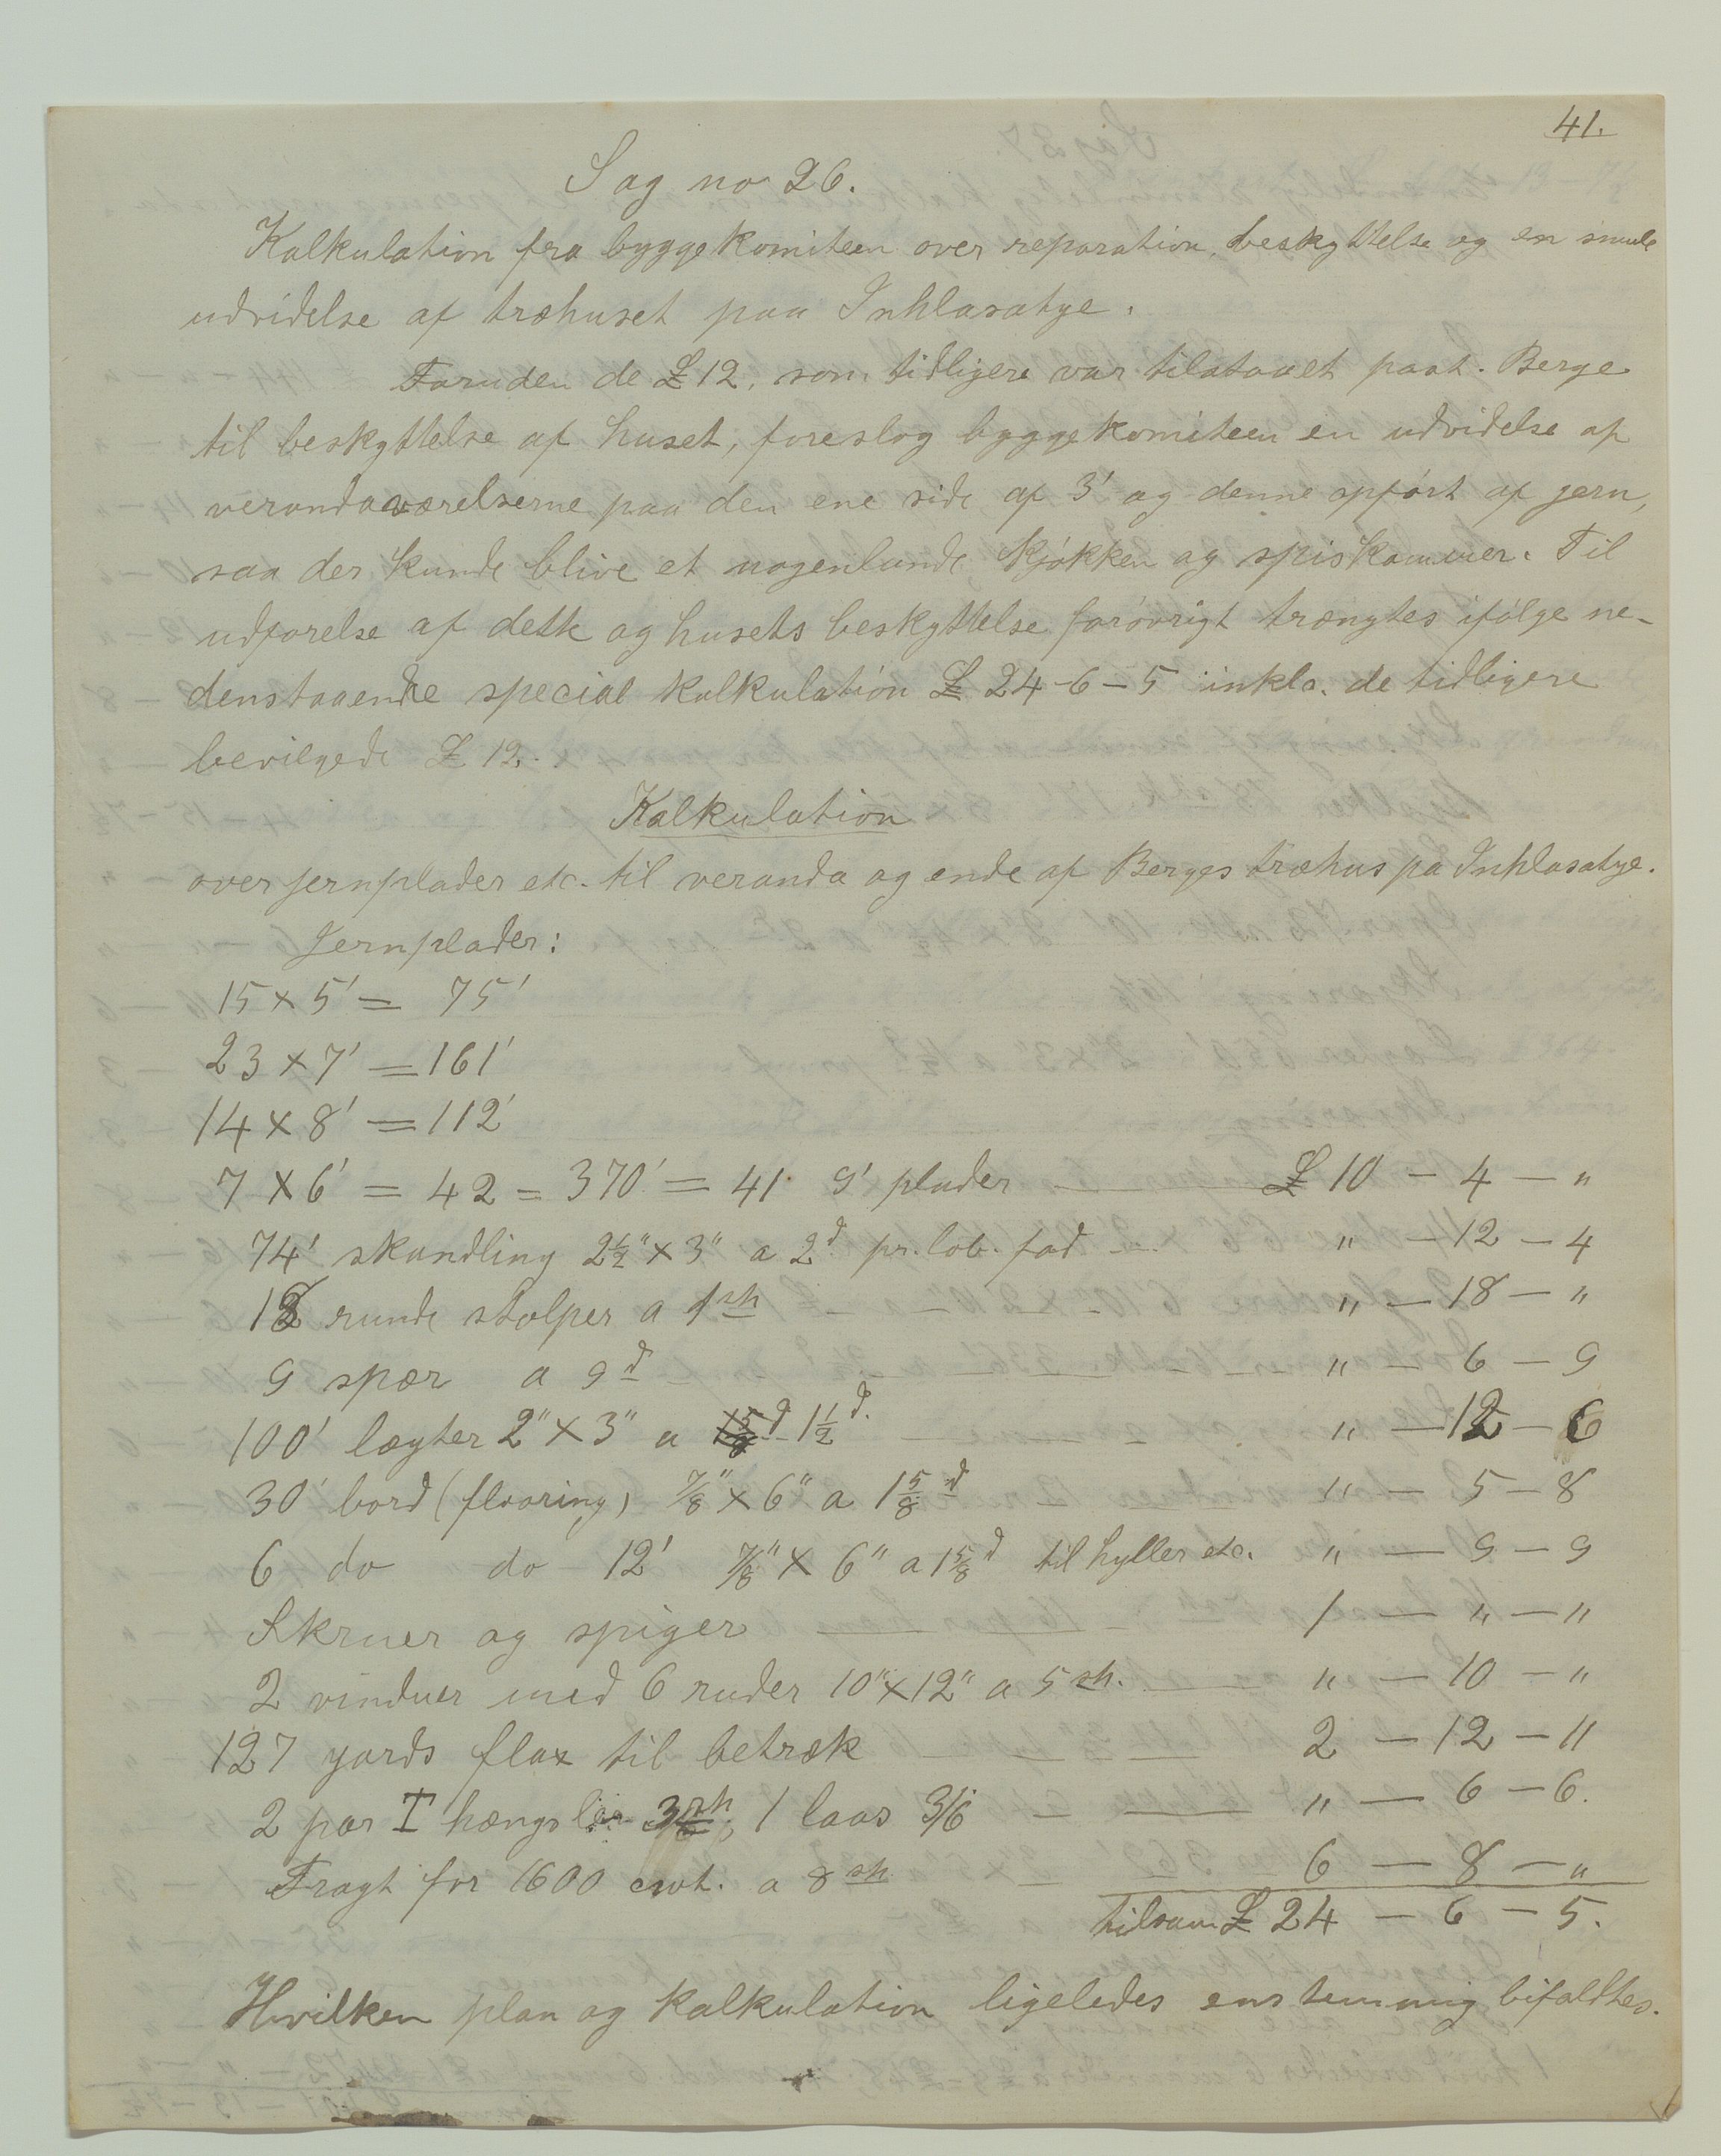 41.
Sag no 26.
Kalkulation fra byggekomiteen over reparation, beskyttelse og en smule
udvidelse af træhuset paa Inhlasatye.
Foruden de £12, som tidligere var tilstaaet past. Berge
til beskyttelse af huset, foreslog byggekomiteen en udvidelse af
verandaværelserne paa den ene side af 3' og denne opført af jern,
saa der kunde blive et nogenlunde kjøkken og spiskammer. Til
udførelse af dette og husets beskyttelse forøvrigt trængtes ifølge ne-
denstaaende special kalkulation £ 24-6-5 inkl. de tidligere
bevilgede £ 12.
Kalkulation
over jernplader etc. til veranda og ende af Berges træhus pa Inhlasatye.
Jernplader:
15 × 5' = 75'
23 × 7' = 161'
14 × 8' = 112'
7 × 6' = 42 = 370' = 41 9' plader — £ 10 — 4 — "
74' skandling 2½" × 3" a 2d pr. løb. fod — " — 12 — 4
18 runde stolper a 1sh — " — 18 — "
9 spær a 9d — " — 6 — 9
100' lægter 2" × 3" a 1½d. — " — 12 — 6
30' bord (flooring) 7/8" × 6" a 1 5/8 d — " — 5 — 8
6 do do 12' 7/8" × 6" a 1 5/8 d til hyller etc. " — 9 — 9
Skruer og spiger — 1 — " — "
2 vinduer med 6 ruder 10" × 12" a 5 sh. — " — 10 — "
127 yards flax til betræk — 2 — 12 — 11
2 par T hængsler 3sh, 1 laas 3/6 — " — 6 — 6.
Fragt for 1600 cwt. a 8 sh — 6 — 8 — "
tilsam £ 24 — 6 — 5.
Hvilken plan og kalkulation ligeledes enstemmig bifaldtes.